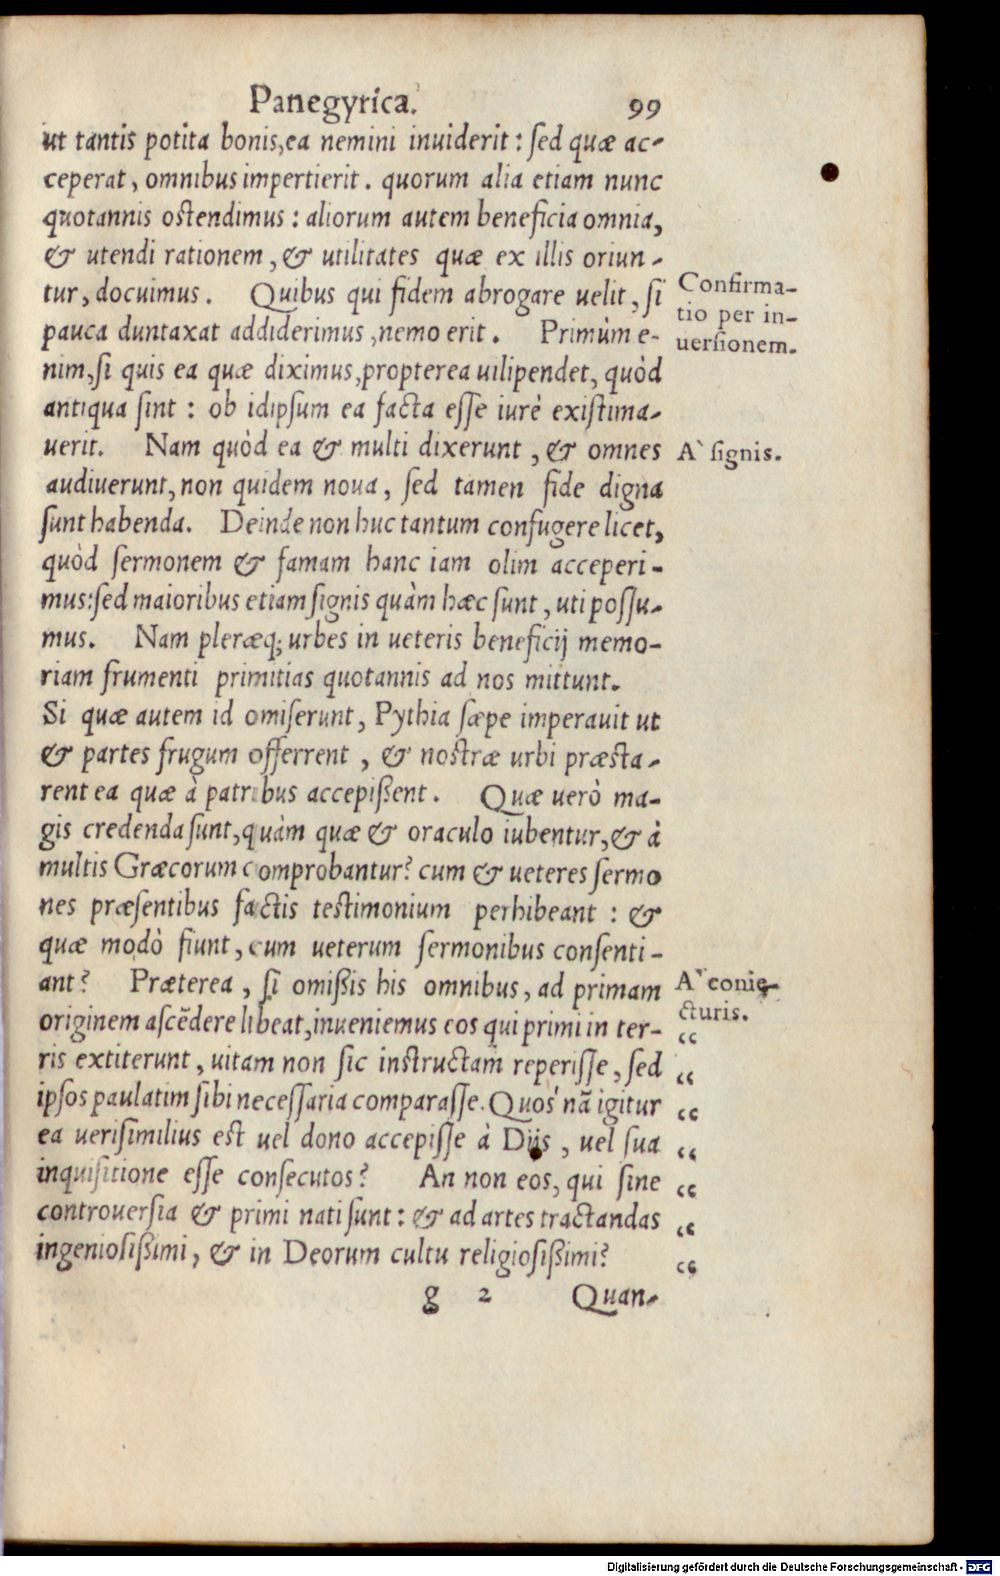 Panegyrica. 99
ut tantis potita bonis, ea nemini inuiderit: sed quæ ac-
ceperat, omnibus impertierit. quorum alia etiam nunc
quotannis ostendimus: aliorum autem beneficia omnia,
& utendi rationem, & utilitates quæ ex illis oriun-
tur, docuimus. Quibus qui fidem abrogare uelit, si
pauca duntaxat addiderimus, nemo erit. Primùm e-
nim, si quis ea quæ diximus, propterea uilipendet, quòd
antiqua sint: ob idipsum ea facta esse iurè existima-
uerit. Nam quòd ea & multi dixerunt, & omnes
audiuerunt, non quidem noua, sed tamen fide digna
sunt habenda. Deinde non huc tantum confugere licet,
quòd sermonem & famam hanc iam olim acceperi-
mus: sed maioribus etiam signis quàm hæc sunt, uti possu-
mus. Nam pleræq; urbes in ueteris beneficij memo-
riam frumenti primitias quotannis ad nos mittunt.
Si quæ autem id omiserunt, Pythia sæpe imperauit ut
& partes frugum offerrent, & nostræ urbi præsta-
rent ea quæ à patribus accepißent. Quæ uerò ma-
gis credenda sunt, quàm quæ & oraculo iubentur, & à
multis Græcorum comprobantur? cum & ueteres sermo
nes præsentibus factis testimonium perhibeant: &
quæ modò fiunt, cum ueterum sermonibus consenti-
ant? Præterea, si omißis his omnibus, ad primam
originem ascẽdere libeat, inueniemus eos qui primi in ter-
ris extiterunt, uitam non sic instructam reperisse, sed
ipsos paulatim sibi necessaria comparasse. Quos nã igitur
ea uerisimilius est uel dono accepisse à Diis, uel sua
inquisitione esse consecutos? An non eos, qui sine
controuersia & primi nati sunt: & ad artes tractandas
ingeniosißimi, & in Deorum cultu religiosißimi?
g 2 Quan-
Confirma-
tio per in-
uersionem.
A` signis.
A` conie-
cturis.
“
“
“
“
“
“
“
Digitalisierung gefördert durch die Deutsche Forschungsgemeinschaft - DFG